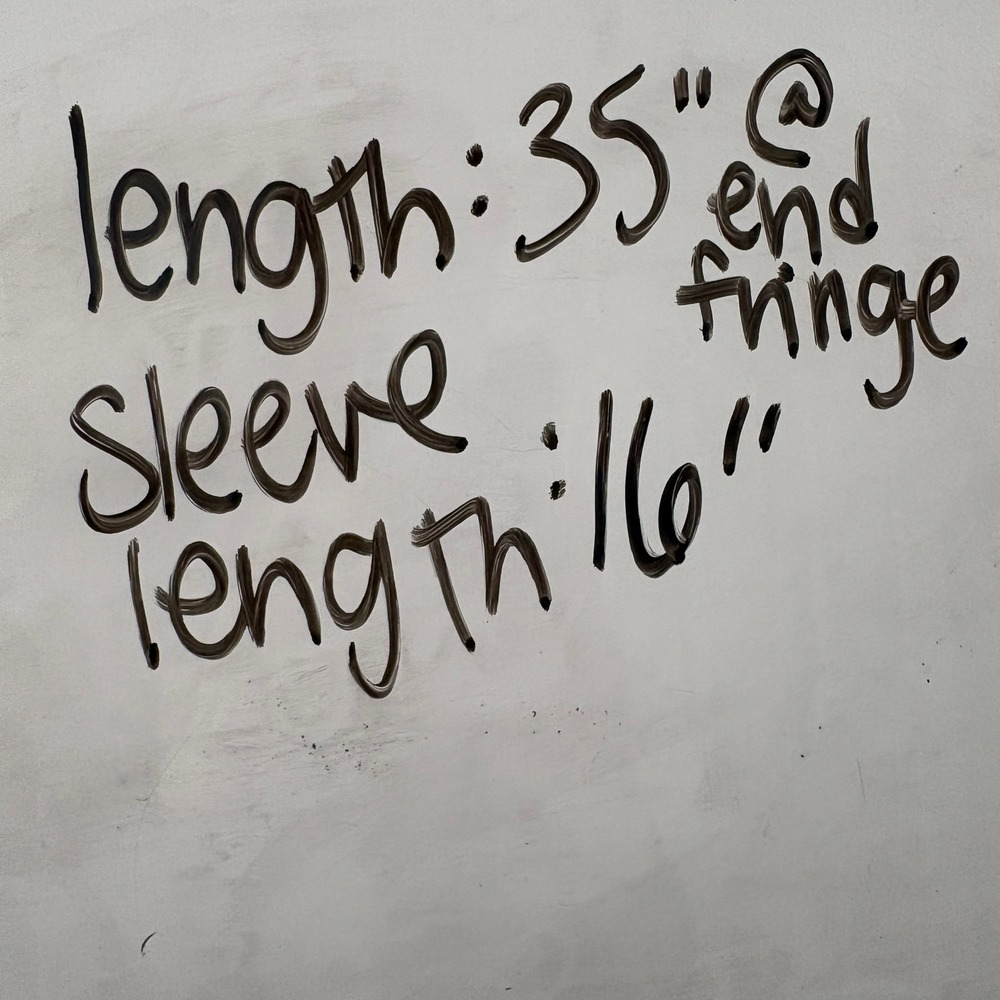 length: 35" @
end
fringe
sleeve
length: 16"